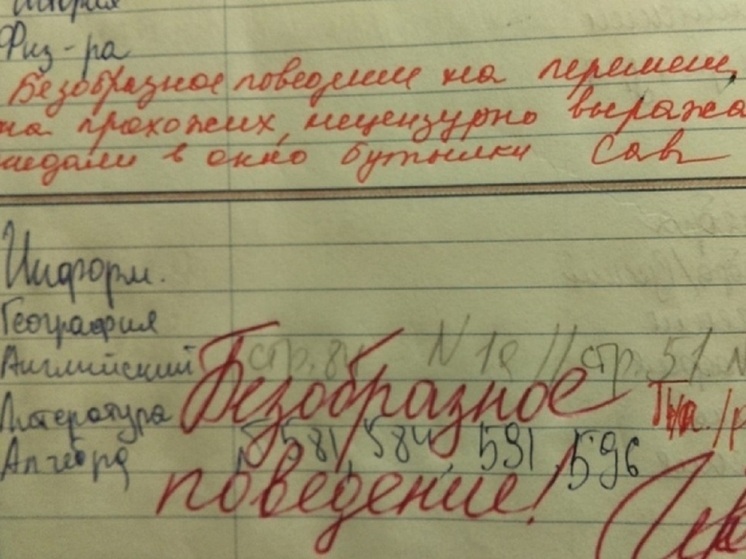 История
Физ-ра
Безобразное поведение на перемен
на прохожих, нецензурно выража
кидали в окно бутылки Сав
Информ.
География
Английский стр. 84 N 19 // стр. 51 N
Безобразное
Литература
Алгебра N 581, 584, 591, 596
поведение!